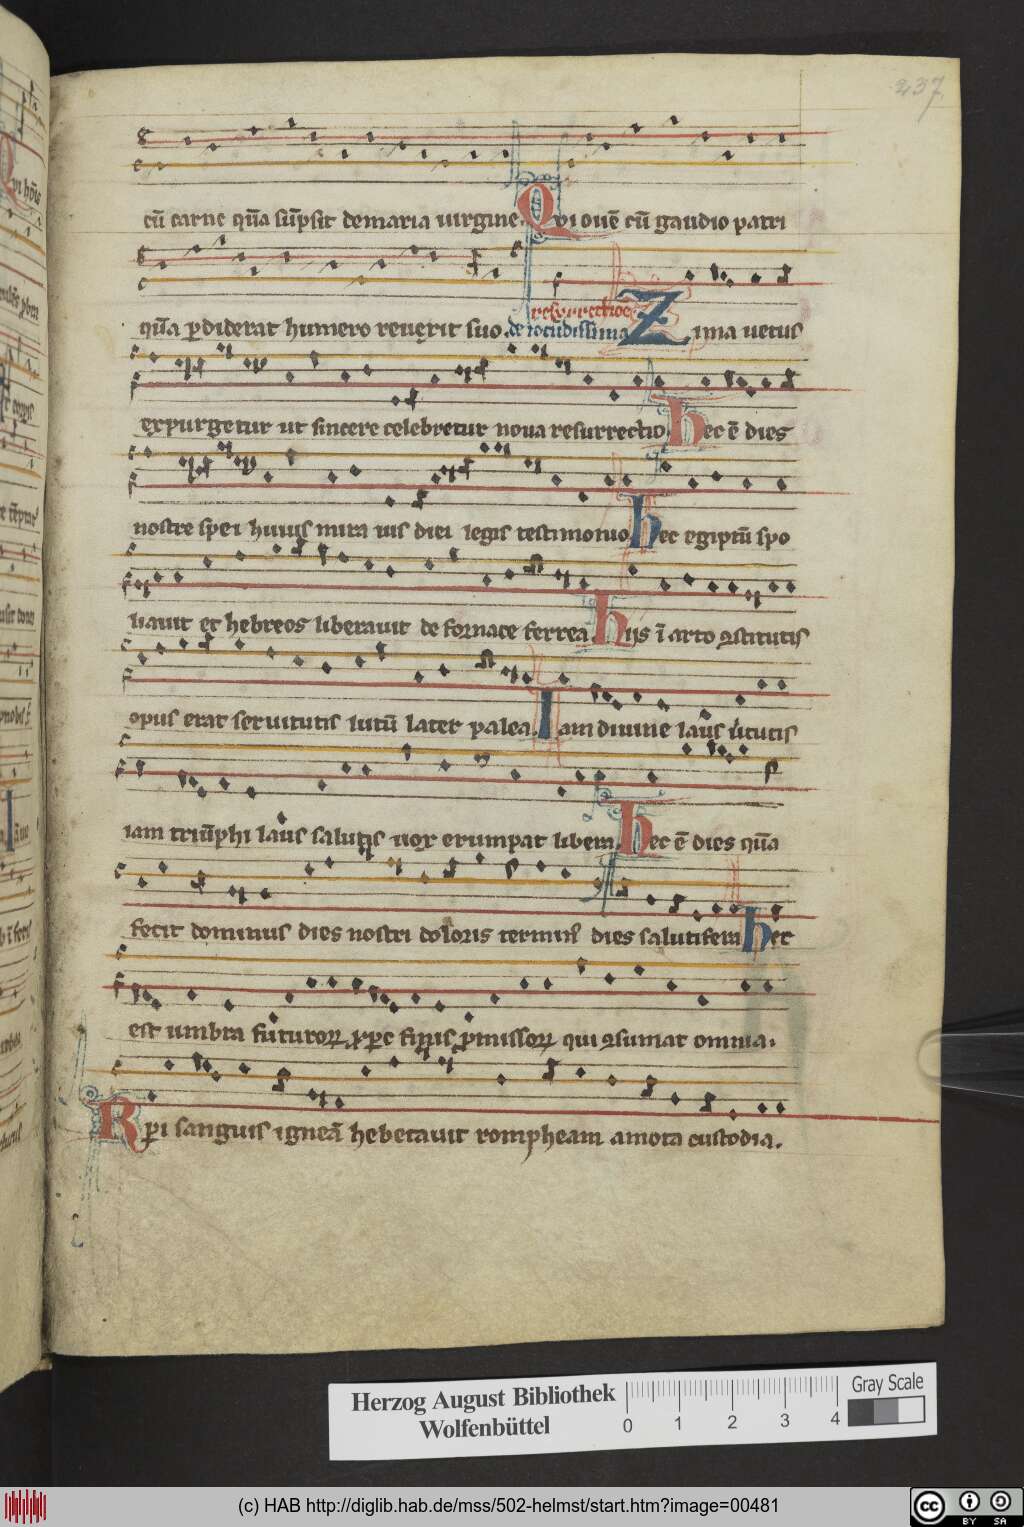 237
cū carne qūa sūpsit demaria uirgine. Qvi ouē cū gaudio patri
qūa ꝑdiderat humero reuexit suo. de iocūdissima resurrectiōe Zima uetus
expurgetur ut sincere celebretur noua resurrectio. hec ē dies
nostre spei huius mira uis diei legis testimonio. hec egiptū spo
liauit et hebreos liberauit de fornace ferrea. hijs ī arto ꝯstitutis
opus erat seruitutis lutū later palea. Iam diuine laus ūtutis
iam triūphi laus salutis uox erumpat libera. hec ē dies qūa
fecit dominus dies nostri doloris terminꝰ dies salutifera. hec
est umbra futuroꝝ xp̄c finis ꝓmissoꝝ qui ꝯsumat omnia.
Xp̄i sanguis igneā hebetauit rompheam amota custodia.
Herzog August Bibliothek
Wolfenbüttel
0 1 2 3 4
Gray Scale
(c) HAB http://diglib.hab.de/mss/502-helmst/start.htm?image=00481
cc BY SA